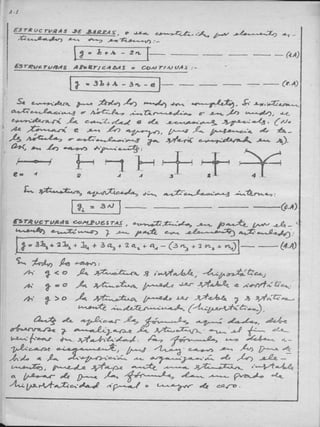 ESTRUCTURAS DE BARRAS, o sea constituidas por elementos ar-
ticulados en sus extremos:-
g = b + r - 2n
ESTRUCTURAS APORTICADAS o CONTINUAS :-
g = 3b + r - 3n - e
Se considera que todos los nudos son completos. Si existieran
articulaciones o rótulas intermedias o en los nudos, se
considerará la cantidad e de ecuaciones especiales. (No
se tomará e en los apoyos, pues la presencia de
rótulas o articulaciones ya estará considerada en r).
Así, en los casos siguientes:
e = 1 2 1 3 2 4
En estructuras aporticadas, sin articulaciones internas:
gi = 3N
ESTRUCTURAS COMPUESTAS, constituidas en parte por ele-
mentos continuos y en parte con elementos articulados:
En todos los casos:
si g < 0 la estructura es instable, hipostática.
si g = 0 la estructura puede ser estable e isostática.
si g > 0 la estructura puede ser estable y estática-
mente indeterminada (hiperstática).
Antes de aplicar las fórmulas aquí dadas, debe
observarse y analizarse la estructura con el fin de
verificar su estabilidad. Las fórmulas no deben a-
plicarse ciegamente, pues hay casos en los que de-
bido a la disposición u organización de los ele-
mentos, puede estarse ante una estructura instable
a pesar de que las fórmulas dan un grado de
hiperstaticidad igual o mayor de cero.